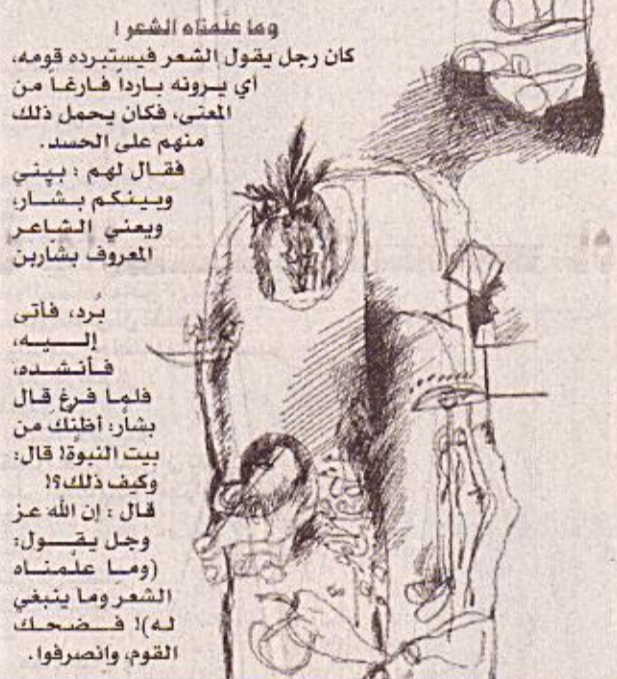 وما علّمناه الشعر !
كان رجل يقول الشعر فيستبرده قومه،
أي يرونه بارداً فارغاً من
المعنى، فكان يحمل ذلك
منهم على الحسد.
فقال لهم : بيني
وبينكم بشار،
ويعني الشاعر
المعروف بشاربن
بُرد، فاتى
إليه،
فأنشده،
فلما فرغ قال
بشار: أظنّك من
بيت النبوّة! قال:
وكيف ذلك؟!
قال : إن الله عز
وجل يقول:
(وما علّمناه
الشعرَ وما ينبغي
له)! فضحك
القوم، وانصرفوا.